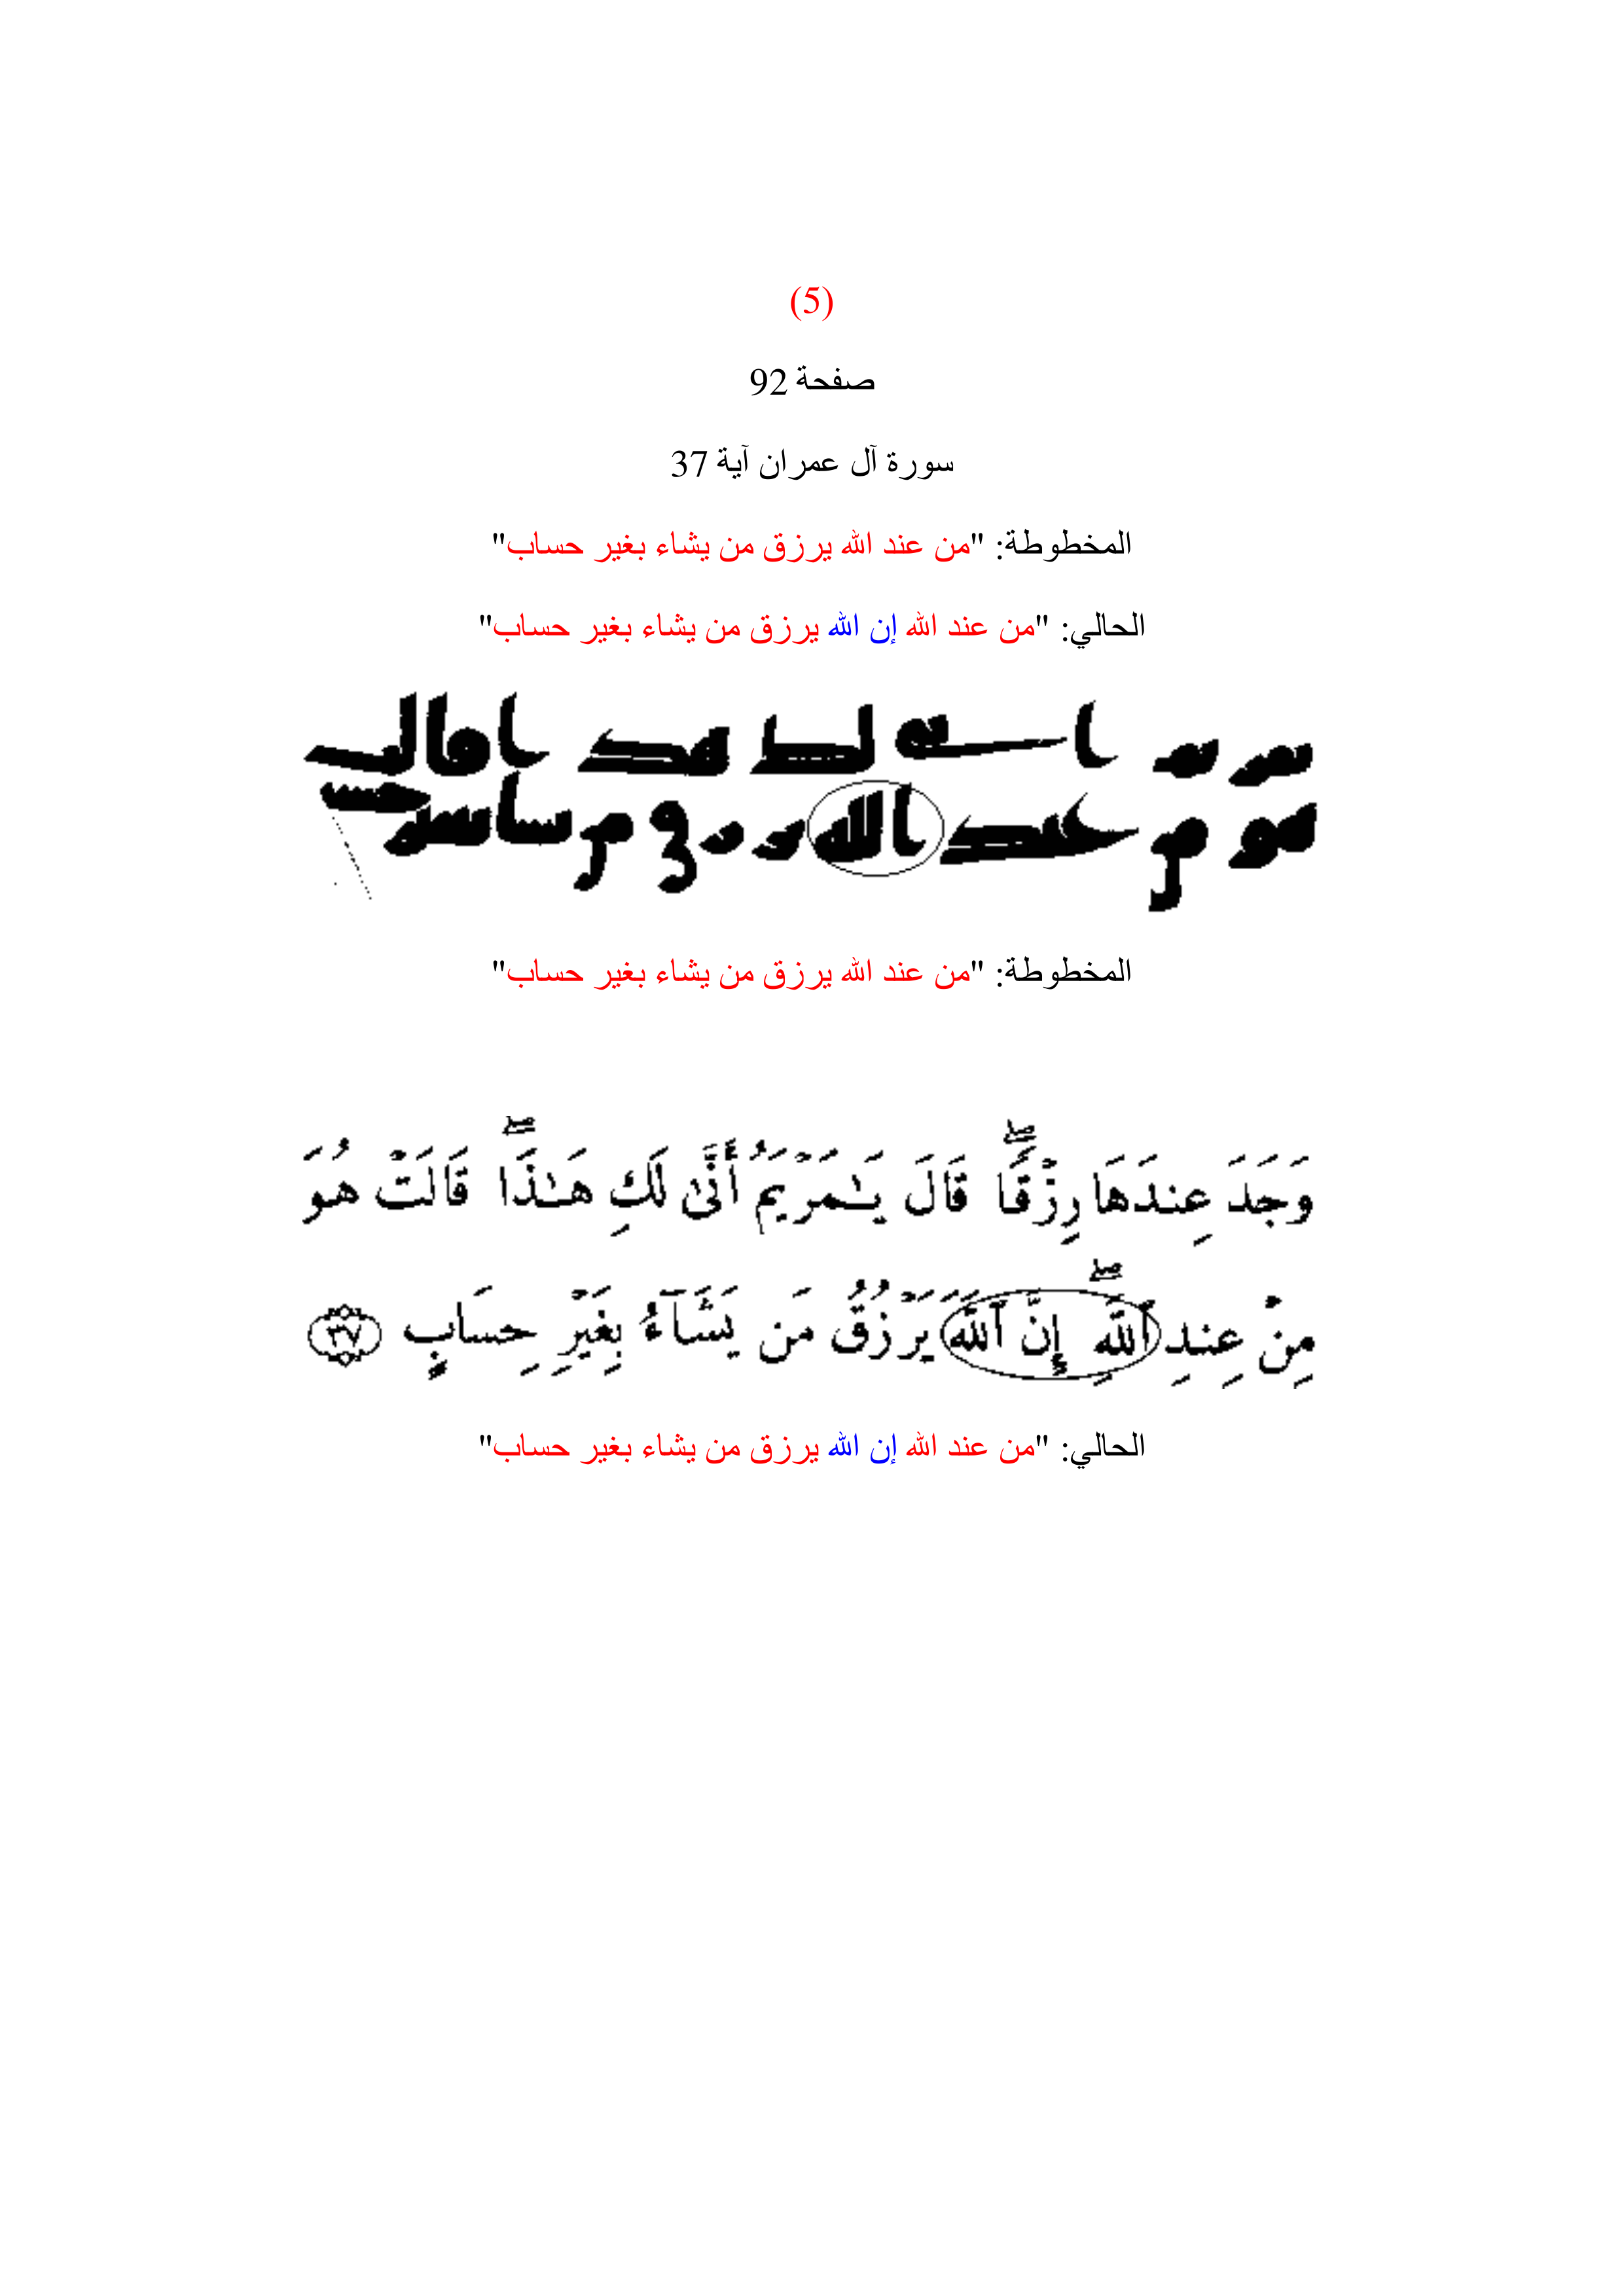 (5)
صفحة 92
سورة آل عمران آية 37
المخطوطة: "من عند الله يرزق من يشاء بغير حساب"
الحالي: "من عند الله إن الله يرزق من يشاء بغير حساب"
هو من عند الله
المخطوطة: "من عند الله يرزق من يشاء بغير حساب"
وَجَدَ عِندَهَا رِزْقًاۖ قَالَ يَـٰمَرْيَمُ أَنَّىٰ لَكِ هَـٰذَاۖ قَالَتْ هُوَ
مِنْ عِندِ ٱللَّهِۖ إِنَّ ٱللَّهَ يَرْزُقُ مَن يَشَآءُ بِغَيْرِ حِسَابٍ ٣٧
الحالي: "من عند الله إن الله يرزق من يشاء بغير حساب"